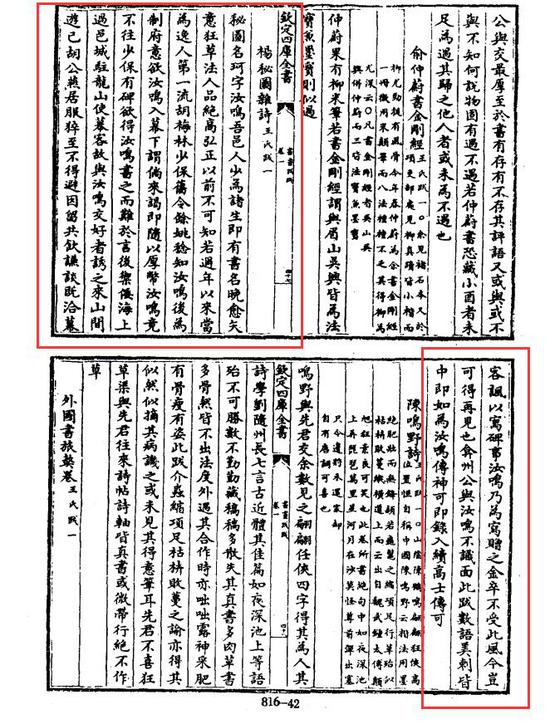 公與交最厚至於書有存有不存其評語又或與或不
與不知何説物固有遇不遇若仲蔚書恐藏小酉者未
足為遇其歸之他人者或未為不遇也
俞仲蔚書金剛經 王氏跋一
仲蔚果有柳来筆若書金剛經謂與眉山吳興皆為法
寶魚墨寶則似過
欽定四庫全書 書畫跋跋 卷一 四十七
楊秘圖雜詩 王氏跋一
秘圖名珂字汝鳴吾邑人少為諸生即有書名晚愈矢
意狂草法人品絶高弘正以前不可知若過年以来當
為逸人第一流胡梅林少保舊令餘姚稔知汝鳴後為
制府意欲汝鳴入幕下謂倘来謁即隨以厚幣汝鳴竟
不往少保有碑欲得汝鳴書之而難於言後禦倭海上
過邑城駐龍山使幕客故與汝鳴交好者誘之来山間
遊已胡公燕居服猝至不得避因留共飲讌談既洽幕
客諷以寫碑事汝鳴乃為寫贈之金卒不受此風今豈
可得再見也弇州公與汝鳴不識面此跋數語美刺皆
中即如為汝鳴傳神可即錄入續高士傳可
陳鳴野詩
鳴野與先君交余數見之翩翩任俠四字得其為人其
欽定四庫全書 書畫跋跋 卷一 四十八
詩學劉隨州長七言古近體其佳篇如夜深池上等語
殆不可勝數不勤勤藏稿稿多散失其真書多肉草書
多骨然皆不出法度外遇其合作時亦咄咄露神采肥
有骨瘦有姿此跋介蟲縮項足枯梢敗蔓之諭亦得其
似然似摘其病譏之或未見其得意筆耳先君不喜狂
草渠與先君往来詩帖詩軸皆真書或微帶行絶不作
草
外國書旅獒卷 王氏跋一
816-42